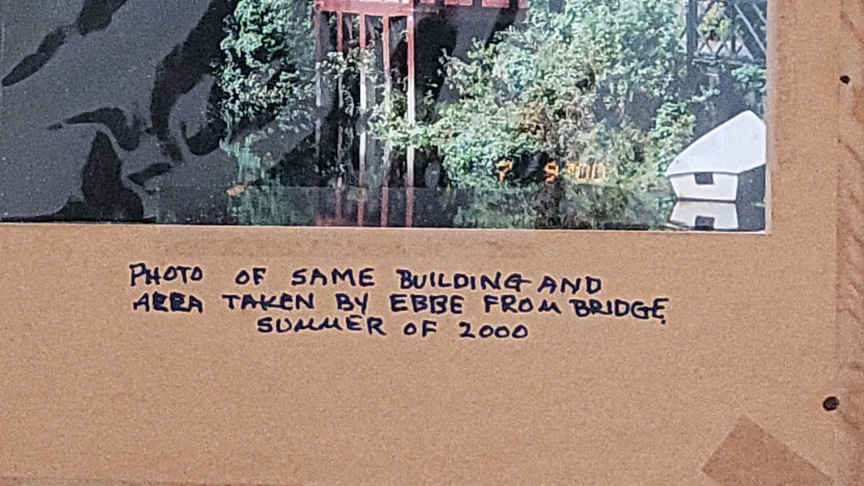 PHOTO OF SAME BUILDING AND
AREA TAKEN BY EBBE FROM BRIDGE
SUMMER OF 2000